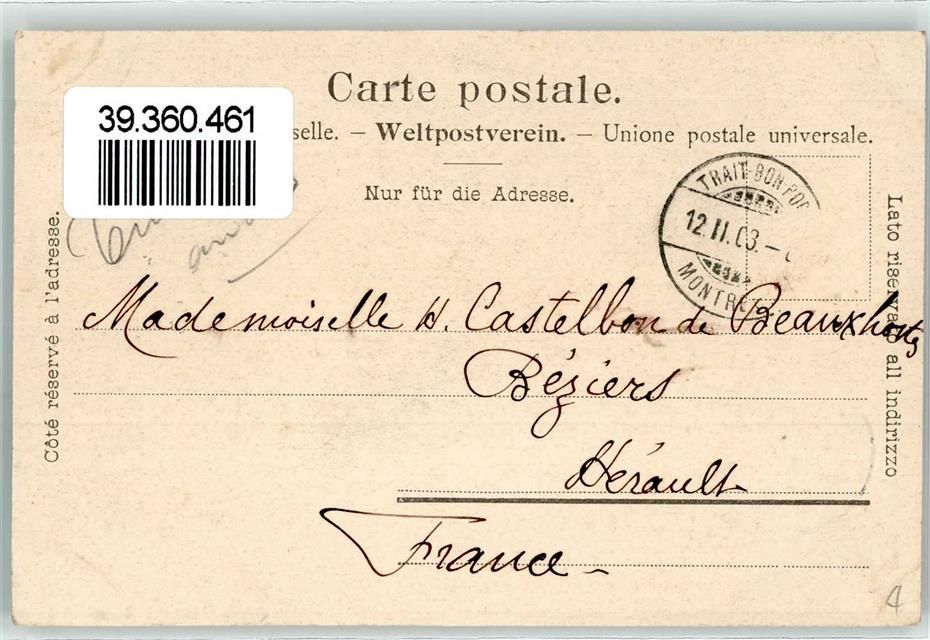 Carte postale.
39.360.461
selle. – Weltpostverein. – Unione postale universale.
Nur für die Adresse.
TRAIT-BON-PO
12.II.03.–
MONTRE
Côté réservé à l'adresse.
Lato riservato all indirizzo
Mademoiselle H. Castelbon de Beauxhostes
Béziers
Hérault
France